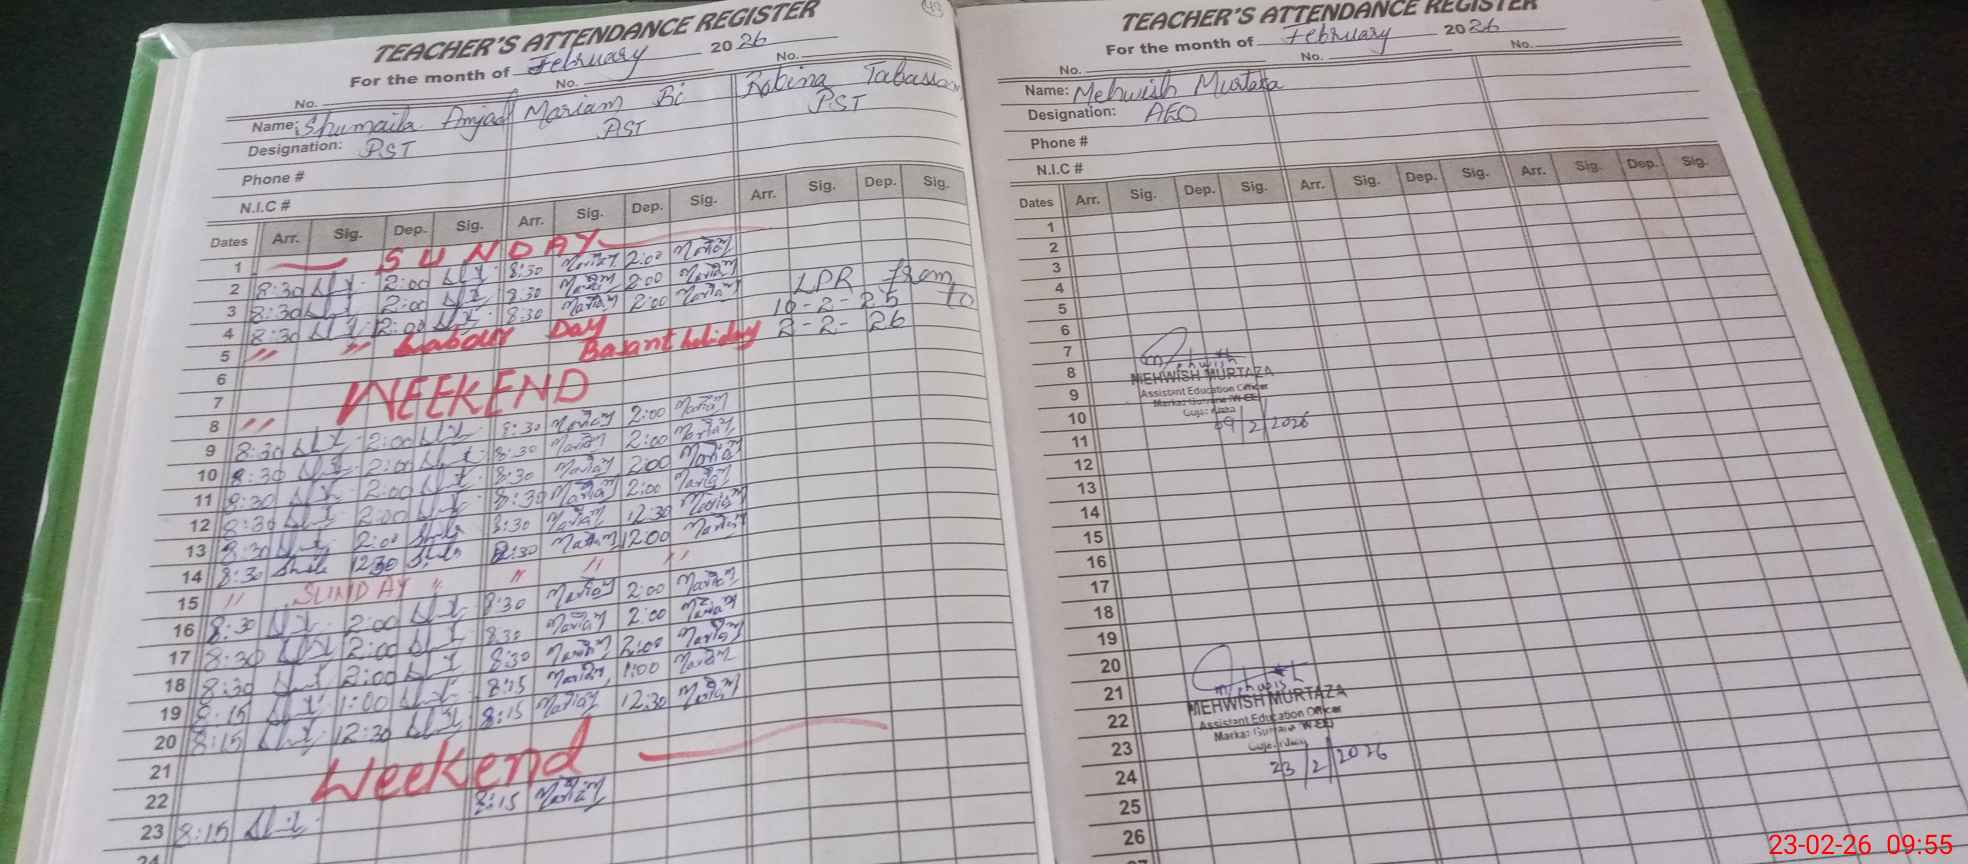 TEACHER'S ATTENDANCE REGISTER
For the month of February 2026
No. No. No.
Name: Shumaila Amjad Mariam Bi Robina Tabassom
Designation: PST PST PST
Phone #
N.I.C #
Dates Arr. Sig. Dep. Sig. Arr. Sig. Dep. Sig. Arr. Sig. Dep. Sig.
1 SUNDAY
2 8:30 2:00 8:30 Mariam 2:00 Mariam
3 8:30 2:00 8:30 Mariam 2:00 Mariam LPR from
4 8:30 2:00 8:30 Mariam 2:00 Mariam 10-2-25 to
5 " " Labour Day 2-2-26
6 Basant holiday
7 WEEKEND
8 "
9 8:30 2:00 8:30 Mariam 2:00 Mariam
10 8:30 2:00 8:30 Mariam 2:00 Mariam
11 8:30 2:00 8:30 Mariam 2:00 Mariam
12 8:30 2:00 8:30 Mariam 2:00 Mariam
13 8:30 2:00 8:30 Mariam 12:30 Mariam
14 8:30 12:30 8:30 Mariam 12:00 Mariam
15 " SUNDAY " " " "
16 8:30 2:00 8:30 Mariam 2:00 Mariam
17 8:30 2:00 8:30 Mariam 2:00 Mariam
18 8:30 2:00 8:30 Mariam 2:00 Mariam
19 8:15 1:00 8:15 Mariam 1:00 Mariam
20 8:15 12:30 8:15 Mariam 12:30 Mariam
21
22 Weekend
23 8:15 8:15 Mariam
24
TEACHER'S ATTENDANCE REGISTER
For the month of February 2026
No. No. No.
Name: Mehwish Murtaza
Designation: AEO
Phone #
N.I.C #
Dates Arr. Sig. Dep. Sig. Arr. Sig. Dep. Sig. Arr. Sig. Dep. Sig.
1
2
3
4
5
6
7 Mehwish
8 MEHWISH MURTAZA
9 Assistant Education Officer
Markaz
10 09/2/2026
11
12
13
14
15
16
17
18
19
20
21 Mehwish
MEHWISH MURTAZA
22 Assistant Education Officer
Markaz
23 23/2/2026
24
25
26
27
23-02-26 09:55